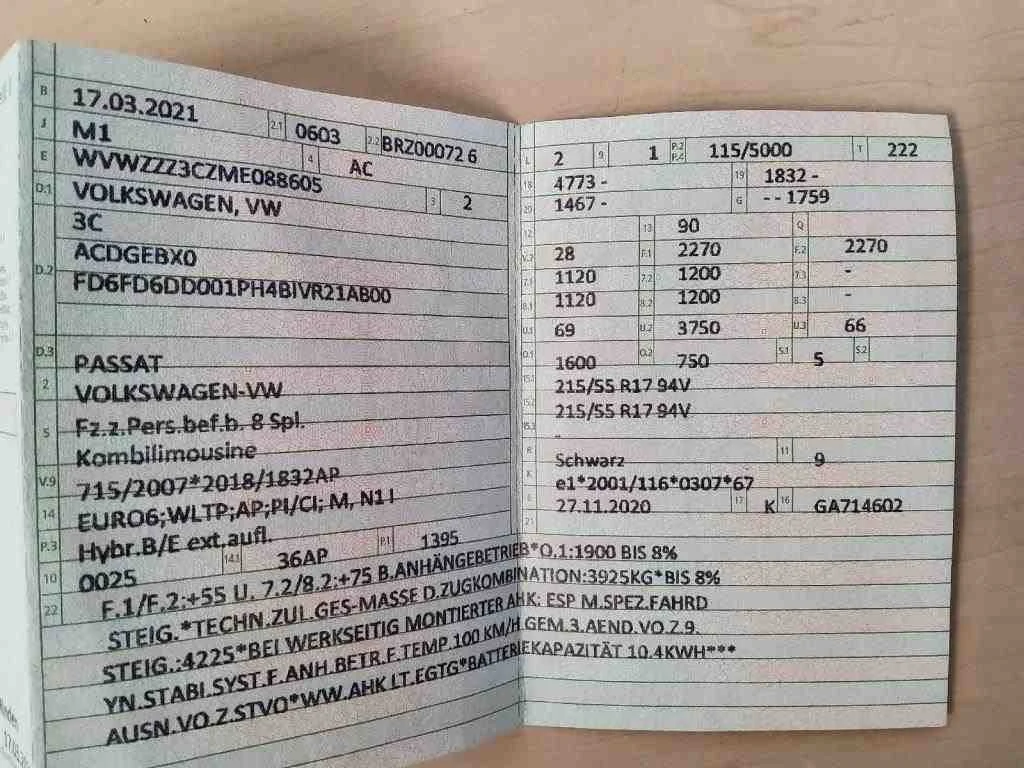 B 17.03.2021 2.1 0603 2.2 BRZ00072 6
J M1 4 AC
E WVWZZZ3CZME088605 3 2
D.1 VOLKSWAGEN, VW
3C
D.2 ACDGEBX0
FD6FD6DD001PH4BIVR21AB00
D.3 PASSAT
2 VOLKSWAGEN-VW
5 Fz.z.Pers.bef.b. 8 Spl.
Kombilimousine
V.9 715/2007*2018/1832AP
14 EURO6;WLTP;AP;PI/CI; M, N1 I
P.3 Hybr.B/E ext.aufl. 14.1 36AP P.1 1395
10 0025
L 2 9 1 P.2 P.4 115/5000 T 222
18 4773 - 19 1832 -
20 1467 - G - - 1759
12 13 90 Q
V.7 28 F.1 2270 F.2 2270
7.1 1120 7.2 1200 7.3 -
8.1 1120 8.2 1200 8.3 -
U.1 69 U.2 3750 U.3 66
O.1 1600 O.2 750 S.1 5 S.2
15.1 215/55 R17 94V
15.2 215/55 R17 94V
15.3 -
R Schwarz 11 9
K e1*2001/116*0307*67
6 27.11.2020 17 K 16 GA714602
21
22 F.1/F.2:+55 U. 7.2/8.2:+75 B.ANHÄNGEBETRIEB*O.1:1900 BIS 8%
STEIG.*TECHN.ZUL.GES-MASSE D.ZUGKOMBINATION:3925KG*BIS 8%
STEIG.:4225*BEI WERKSEITIG MONTIERTER AHK: ESP M.SPEZ.FAHRD
YN.STABI.SYST.F.ANH.BETR.F.TEMP.100 KM/H.GEM.3.AEND.VO.Z.9.
AUSN.VO.Z.STVO*WW.AHK LT.EGTG*BATTERIEKAPAZITÄT 10.4KWH***